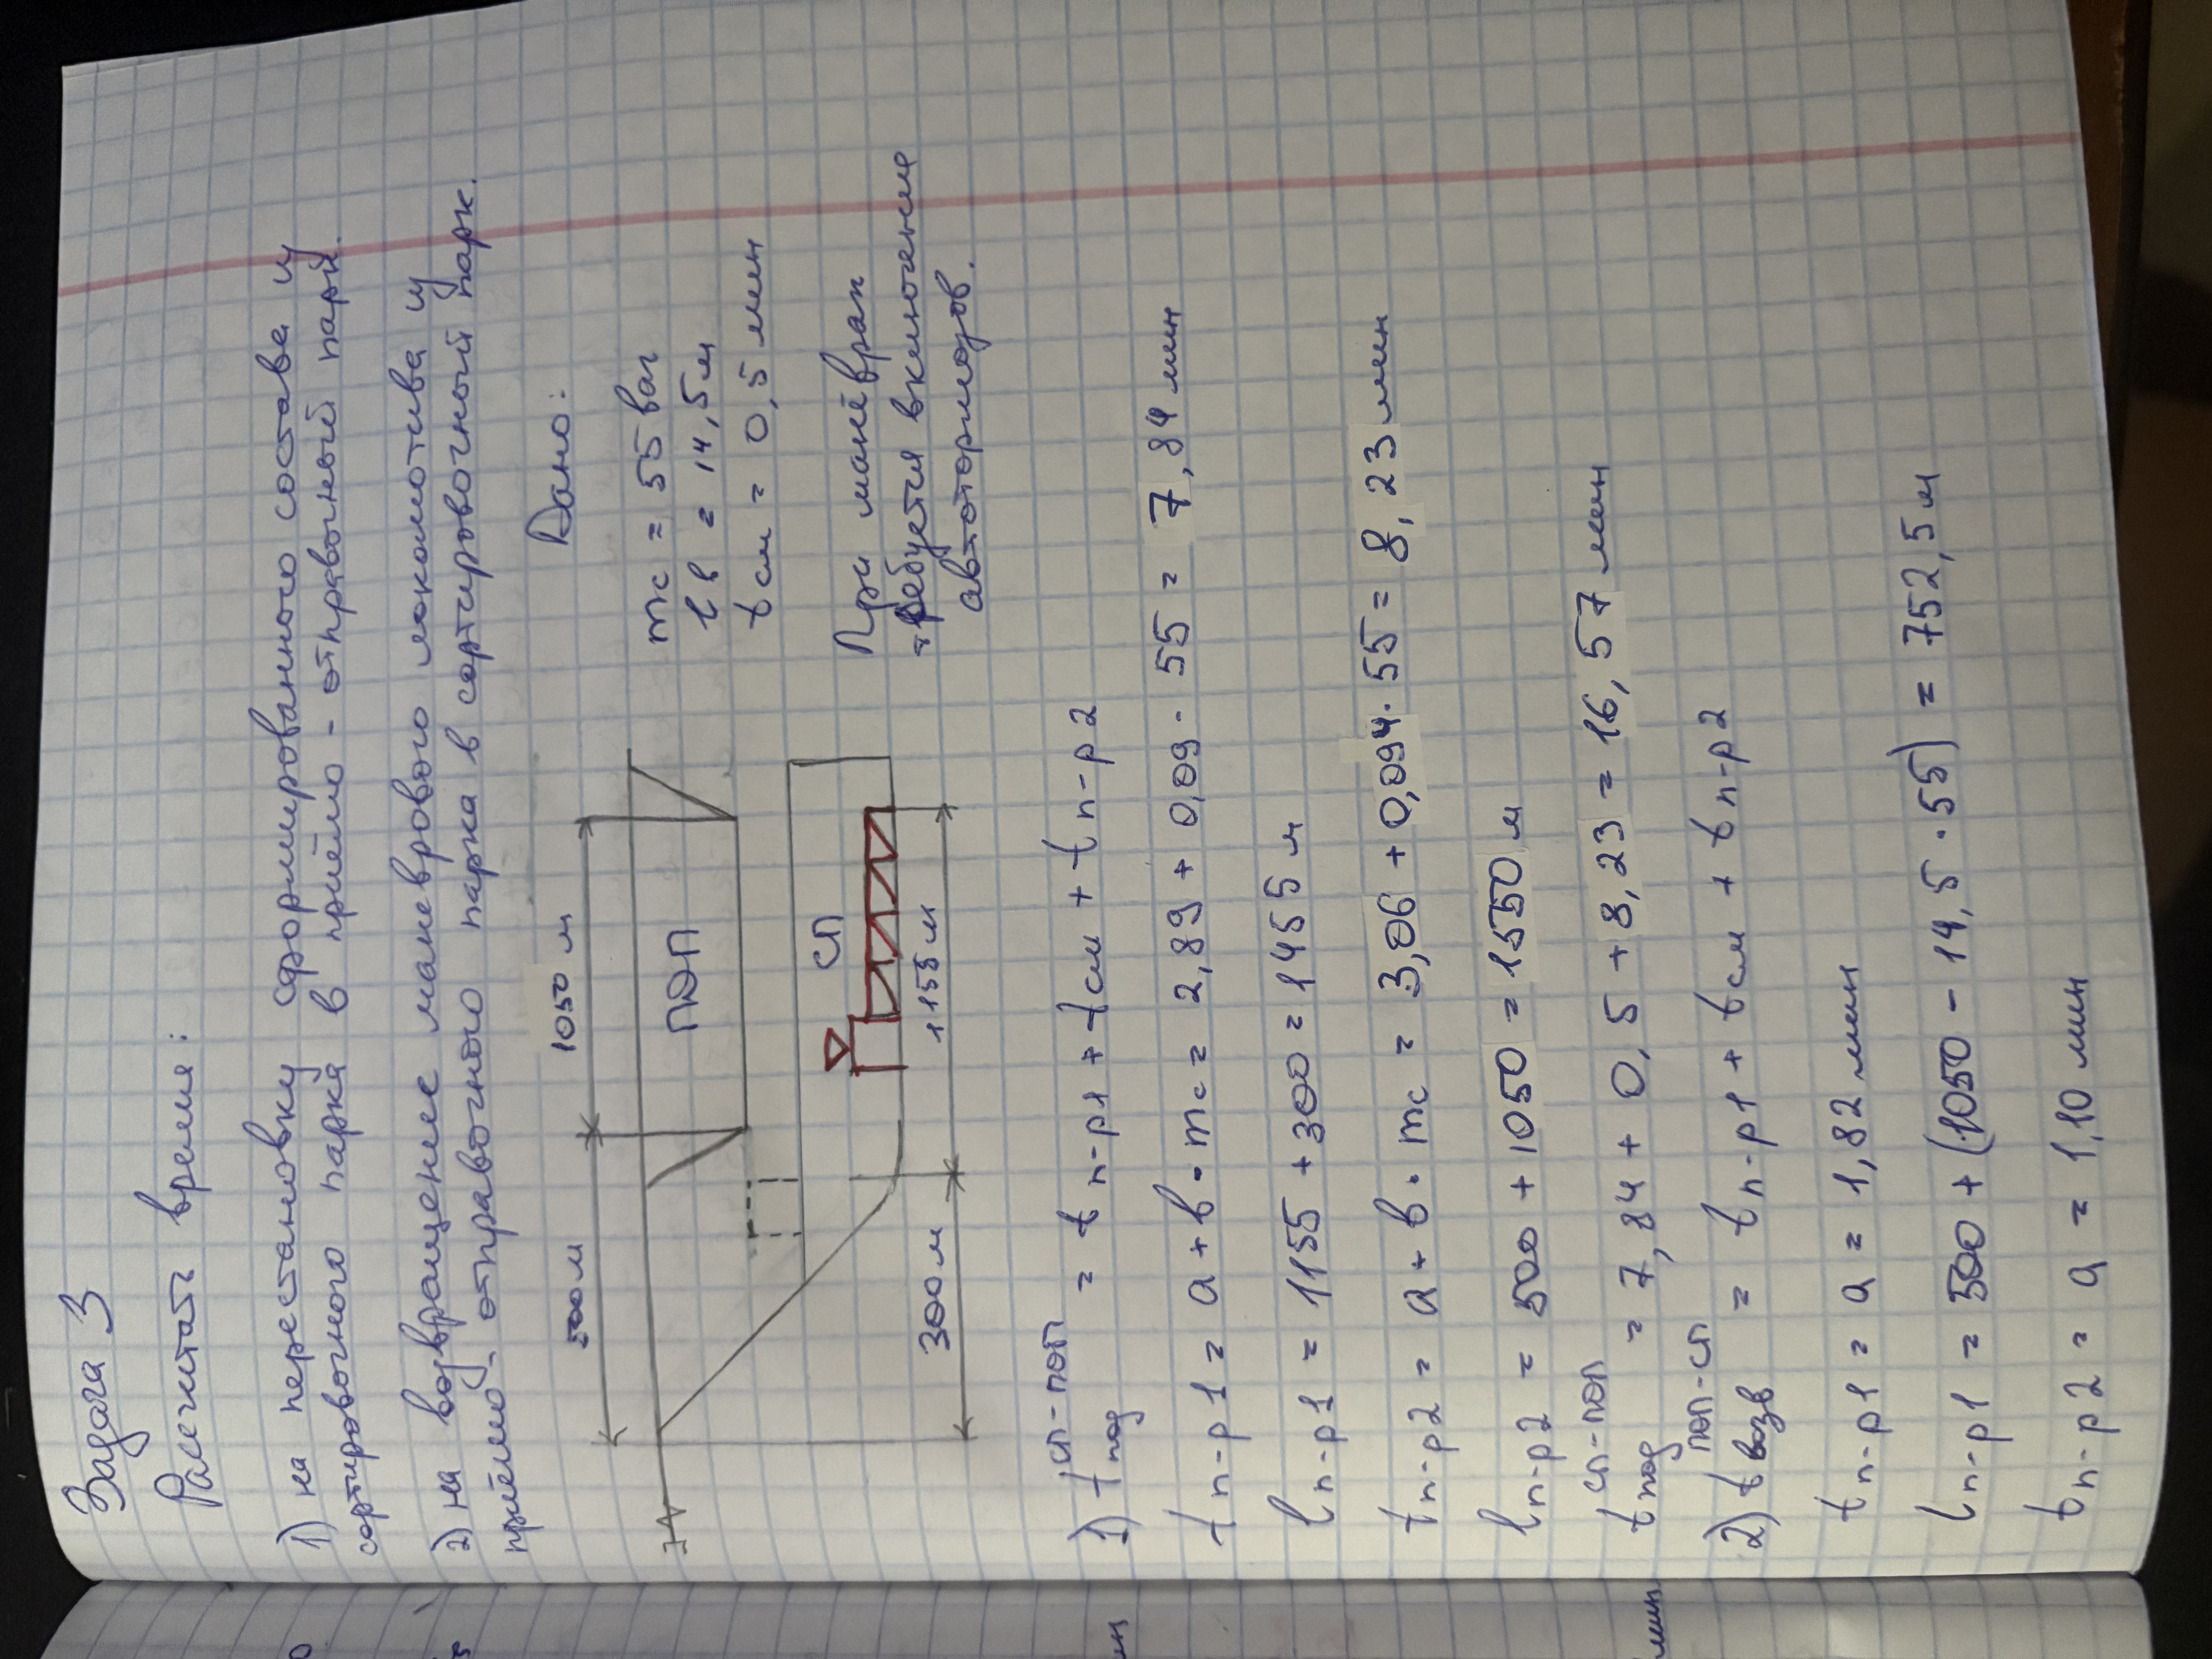 Задача 3
Расчитать время:
1) на перестановку сформированного состава из
сортировочного парка в приёмо - отправочный парк.
2) на возвращение маневрового локомотива из
приёмо - отправочного парка в сортировочный парк.
Дано:
500 м
1050 м
ПОП
СП
300 м
1155 м
mc = 55 ваг
lв = 14,5 м
tсм = 0,5 мин
При манёврах
требуется включение
автотормозов.
1) t под сп-поп = t п-р1 + tсм + t п-р2
t п-р1 = a + в · mc = 2,89 + 0,09 · 55 = 7,84 мин
l п-р1 = 1155 + 300 = 1455 м
t п-р2 = a + в · mc = 3,06 + 0,094 · 55 = 8,23 мин
l п-р2 = 500 + 1050 = 1550 м
t под сп-поп = 7,84 + 0,5 + 8,23 = 16,57 мин
2) t возв поп-сп = t п-р1 + tсм + t п-р2
t п-р1 = a = 1,82 мин
l п-р1 = 500 + (1050 - 14,5 · 55) = 752,5 м
t п-р2 = a = 1,10 мин
мин